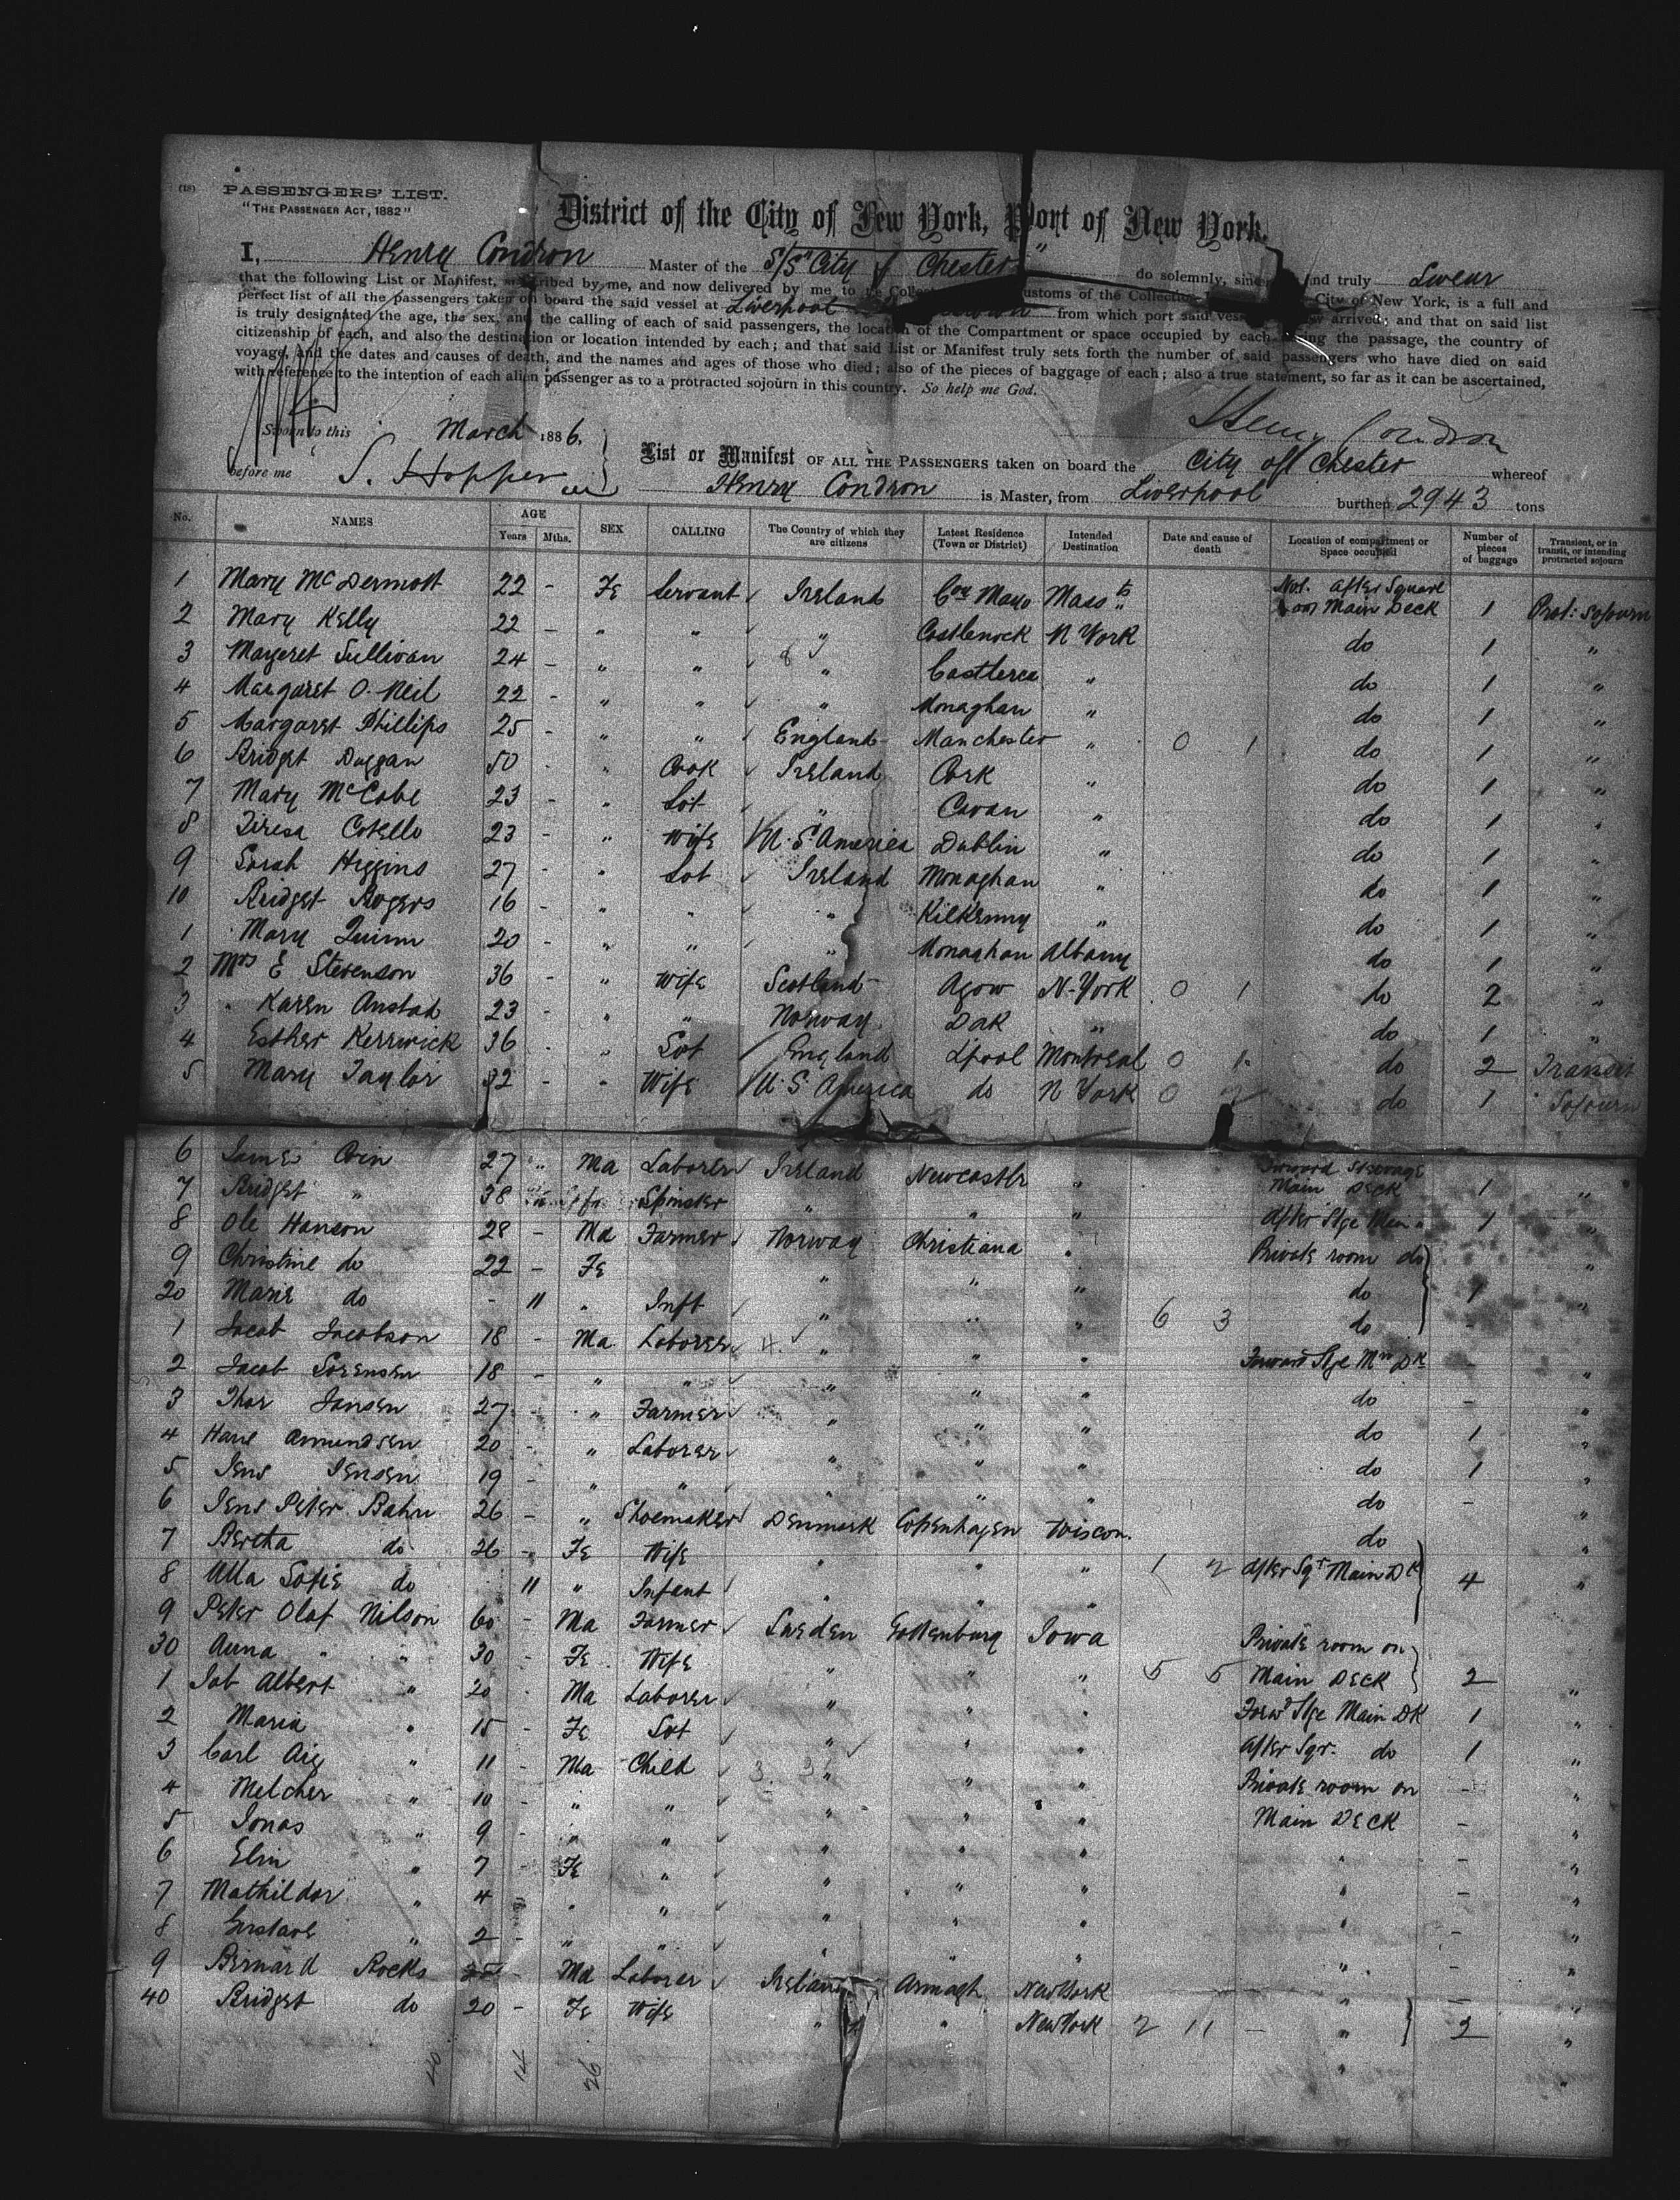 (18) PASSENGERS' LIST.
"THE PASSENGER ACT, 1882"
District of the City of New York, Port of New York.
I, Henry Condron Master of the S/S "City of Chester" do solemnly, and truly Swear
that the following List or Manifest, by me, and now delivered by me to the customs of the Collection City of New York, is a full and
perfect list of all the passengers taken on board the said vessel at Liverpool from which port said arrived; and that on said list
is truly designated the age, the sex, and the calling of each of said passengers, the location of the Compartment or space occupied by each the passage, the country of
citizenship of each, and also the destination or location intended by each; and that said List or Manifest truly sets forth the number of said passengers who have died on said
voyage, and the dates and causes of death, and the names and ages of those who died; also of the pieces of baggage of each; also a true statement, so far as it can be ascertained,
with reference to the intention of each alien passenger as to a protracted sojourn in this country. So help me God.
Henry Condron
Sworn to this March 1886.
before me S. Hopper
List or Manifest OF ALL THE PASSENGERS taken on board the City of Chester whereof
Henry Condron is Master, from Liverpool burthen 2943 tons
No. NAMES AGE Years Mths. SEX CALLING The Country of which they are citizens Latest Residence (Town or District) Intended Destination Date and cause of death Location of compartment or Space occupied Number of pieces of baggage Transient, or in transit, or intending protracted sojourn
1 Mary McDermott 22 - Fe Servant Ireland Coy Mayo Masstts After Square on Main Deck 1 Prot: Sojourn
2 Mary Kelly 22 - " " " Castlenock N York do 1 "
3 Margeret Sullivan 24 - " " " Castlerea " do 1 "
4 Margaret O. Neil 22 - " " " Monaghan " do 1 "
5 Margaret Phillips 25 - " " England Manchester " 0 1 do 1 "
6 Bridget Duggan 50 - " Cook Ireland Cork " do 1 "
7 Mary McCabe 23 - " Svt " Cavan " do 1 "
8 Teresa Cotello 23 - " Wife U.S America Dublin " do 1 "
9 Sarah Higgins 27 - " Svt Ireland Monaghan " do 1 "
10 Bridget Rogers 16 - " " " Kilkenny " do 1 "
1 Mary Quinn 20 - " " " Monaghan Albany do 1 "
2 Mrs E Stevenson 36 - " Wife Scotland Agow N-York 0 1 do 2 "
3 Karen Anstad 23 - " " Norway Dak " do 1 "
4 Esther Kerrwick 36 - " Svt England Lpool Montreal 0 1 do 2 Transit
5 Mary Taylor 32 - " Wife U.S. America do N York 0 2 do 1 Sojourn
6 James Coin 27 " Ma Laborer Ireland Newcastle " Forward Steerage Main Deck 1 "
7 Bridget " 38 Spinster " " " After Stge Main " 1 "
8 Ole Hanson 28 - Ma Farmer Norway Christiana " Private room do "
9 Christine do 22 - Fe " " " do 1 "
20 Marie do - 11 " Inft " " " 6 3 do -
1 Jacob Jacobson 18 - Ma Laborer " " " Forward Stge Mn Dk - "
2 Jacob Sorensen 18 - " " " " " do - "
3 Thor Jansen 27 - " Farmer " " " do 1 "
4 Hans Amundsen 20 - " Laborer " " " do 1 "
5 Jens Jensen 19 - " " " " " do - "
6 Jens Peter Bahn 26 - " Shoemaker Denmark Copenhagen Wiscon. do
7 Bertha do 26 - Fe Wife " " " 1 2 After Sqr Main Dk 4 "
8 Ulla Sofie do 11 " Infant " " "
9 Peter Olaf Nilson 60 - Ma Farmer Sweden Gottenburg Iowa Private room on
30 Anna " " 30 - Fe Wife " " " 5 5 Main Deck 2 "
1 Job Albert " 20 - Ma Laborer " " " Forwd Stge Main DK 1 "
2 Maria " 15 - Fe Svt " " " After Sqr. do 1 "
3 Carl Aig " 11 - Ma Child " " " Private room on - "
4 Melcher " 10 - " " " " " Main Deck - "
5 Jonas " 9 - " " " " " " - "
6 Elin " 7 - Fe " " " " " - "
7 Mathilda " 4 - " " " " " " - "
8 Gustave " 2 - " " " " " " - "
9 Bernard Rocks - Ma Laborer Ireland Armagh New York " - "
40 Bridget do 20 - Fe Wife " " New York 2 11 - " 2 "
40 14 26